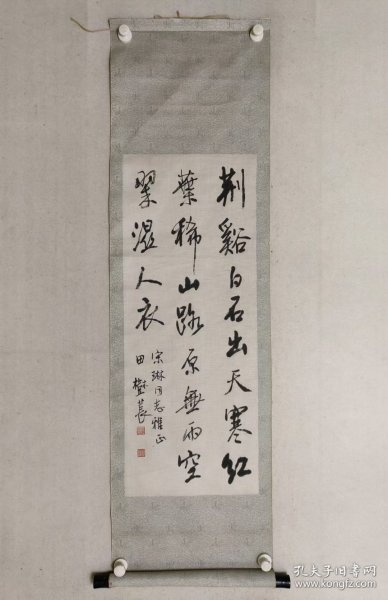 荆谿白石出天寒红
葉稀山路原無雨空
翠濕人衣
宗琳同志雅正
田樹萇
孔夫子旧书网